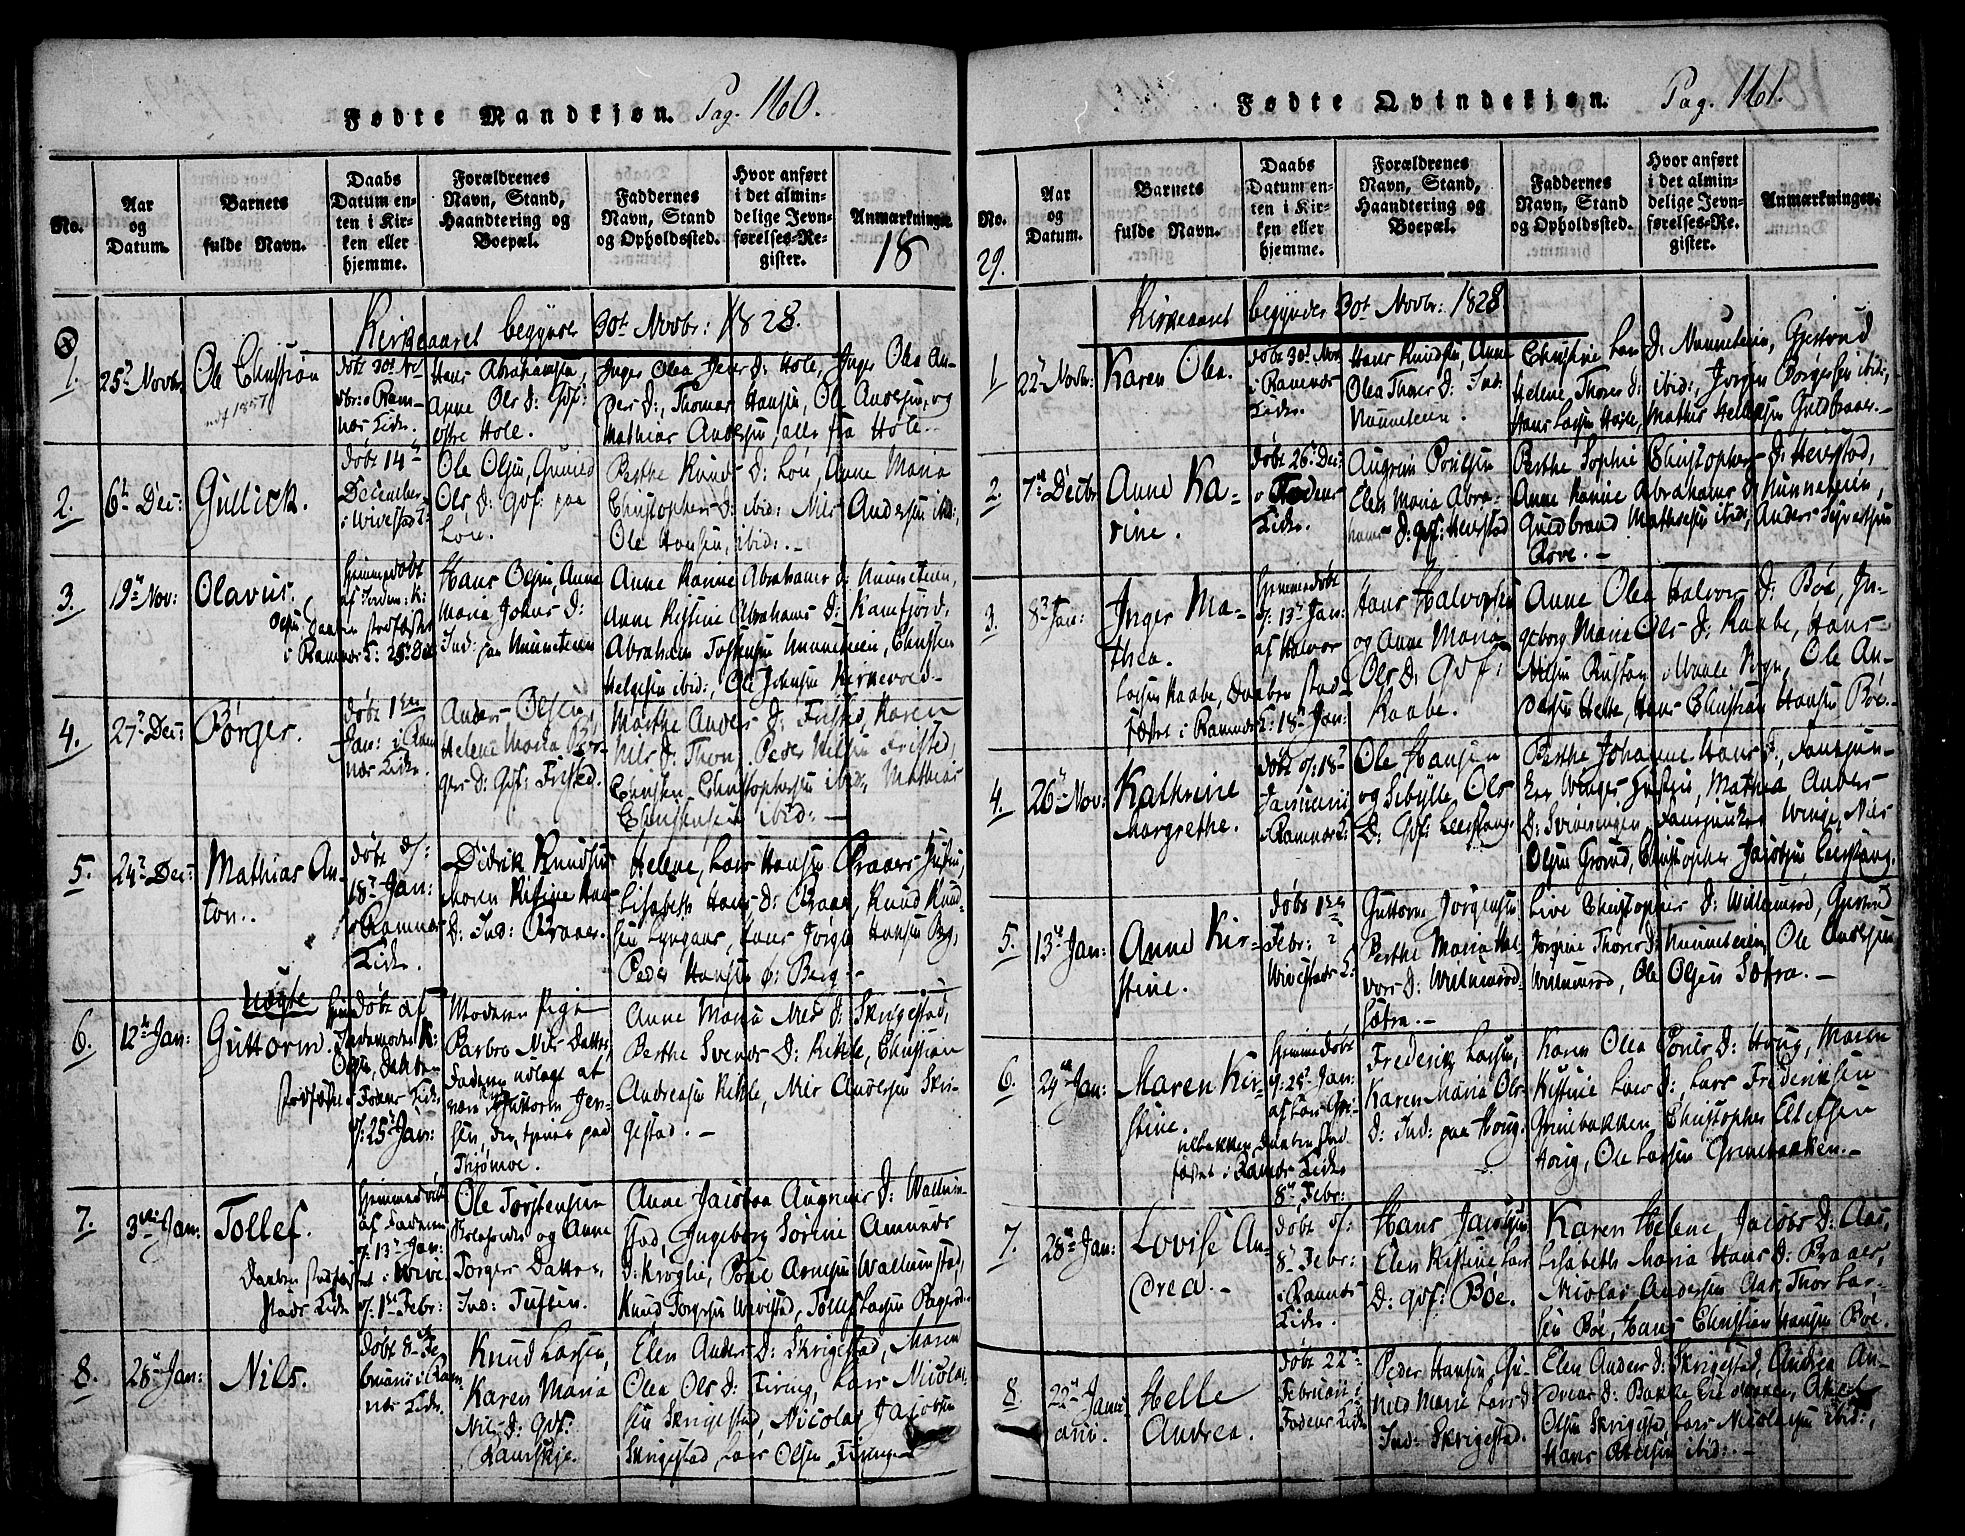 Fødte Mandkjøn. Pag. 160.
No.
Aar
og
Datum.
Barnets
fulde Navn.
Daabs
Datum en-
ten i Kir-
ken eller
hjemme.
Forældrenes
Navn, Stand,
Haandtering og
Boepæl.
Faddernes
Navn, Stand
og Opholdssted.
Hvor anført
i det almin-
delige Jevn-
førelses-Re-
gister.
Anmærkninger.
18
Kirkeaaret begynder 30t Novbr: 1828.
1.
25t Novbr
Ole Christian
Døbt 30t No-
vbr: i Ram-
næs Kirke.
Hans Abrahamsen,
Anne Ols D: Gdf:
østre Hole.
Inger Olea Iver D: Hole, Inger Olea An-
ders D:, Thomas Hansen, Ole Andersen, og
Mathias Andersen, alle fra Hole.
2.
6t Dec:
Gullick.
Døbt 14t
December
i Wivestad K:
Ole Olsen, Gunild
Ols D: Gdf: paa
Løn.
Berthe Knuds D: Løn, Anne Maria
Christophers D: ibid: Nils Andersen ibid:,
Ole Hansen, ibid:.
3.
19t Nov:
Olavus.
Hjemmedøbt
af Jordem: K:
Olsen, Daaben stadfæstet
i Ramnæs K: 28t Dec
Hans Olsen, Anne
Maria Johns D:
Ind: paa Nunneteien
Anne Karine Abrahams D: Nunneteien,
Anne Kistine Abrahams D: Kamfjord,
Abraham Nunneteien, Christen
Helgesen ibid:, Ole Johnsen Kirkevold.
4.
27t Dec:
Børger.
Døbt 1ste
Jan: i Ram
næs Kirke.
Anders Olsen,
Helene Maria Bør-
gers D: Gdf: Fristed.
Marthe Anders D: Fristed, Karen
Nils D: Thon, Peder Nilsen Fristed,
Christen Christophersen ibid:, Mathias
Christensen ibid:
5.
24t Dec:
Mathias An-
ton.
Døbt d:
18t Jan:
i Ramnæs
Kirke.
Didrik Knudsen
Maren Kistine Hans
D: Ind: Braaer.
Helene, Lars Hansen Braaers Hustru,
Lisabeth Hans D: Braaer, Knud Knud-
sen Lyngaas, Hans Jørgen Hansen Berg,
Peder Hansen Berg.
6.
12t Jan:
Uægte
Guttorm.
Hjemdøbt af
Jordemoder K:
Olsen, Daaben
stadfæstet i
Fodens Kirke
d: 25t Jan:
Moderen Pige
Barbro Nils Datter,
Faderen udlagt at
være Guttorm Jen-
sen, der tjener paa
Thjømøe.
Anne Maria Nils D: Skrigestad,
Berthe Svends D: Kikle, Christian
Andreasen Kikle, Nils Andersen Skri-
gestad.
7.
3die Jan:
Tollef.
Hjemmedøbt
af Faderen
d: 13t Jan:
Daaben stadfæstet i Wive-
stads Kirke
d: 1ste Febr:
Ole Torstensen
Skoleholder og Anne
Torgers Datter,
Ind: Tuften.
Anne Jacobea Augrims D: Wallum-
stad, Ingeborg Sørine Amunds
D: Kroglie, Povel Arnesen Wallumstad,
Knud Torgersen Wivestad, Tollef Larsen
8.
28t Jan:
Nils.
Døbt 8t Fe-
bruarii i Ram
næs Kirke.
Knud Larsen,
Karen Maria
Nils D: Gdf:
Ramskje.
Elen Anders D: Skrigestad, Maren
Olea Ols D: Firing, Lars Nicolai-
sen Skrigestad, Nicolay Jacobsen
Skrigestad, Lars Olsen Firing.
Fødte Qvindekjøn. Pag. 161.
No.
29.
Aar
og
Datum.
Barnets
fulde Navn.
Daabs
Datum en-
ten i Kir-
ken eller
hjemme.
Forældrenes
Navn, Stand,
Haandtering og
Boepæl.
Faddernes
Navn, Stand
og Opholdssted.
Hvor anført
i det almin-
delige Jevn-
førelses-Re-
gister.
Anmærkninger.
Kirkeaaret begynder 30t Novbr: 1828
1
22t Novbr:
Karen Olea.
Døbt 30t Nov
i Ramnæs
Kirke.
Hans Knudsen, Anne
Olea Thores D: Ind:
Nunneteien.
Christine Lars D: Nunneteien, Gjertrud
Helene Thores D: ibid:, Jørgen Børgesen ibid:,
Hans Larsen Hasle, Mathis Hellesen Guldkraaer.
2.
7de Decbr
Anne Ka-
rine.
Døbt 26t Dec:
i Fodens
Kirke.
Augrim Povelsen
Elen Maria Abra-
hams D: Gdf: Heirstad
Berthe Sophie Christophers D: Heirstad,
Anne Karine Abrahams D: Nunneteien,
Guldbrand Mathisen ibid:, Anders Sivertsen
Røve.
3.
8t Jan:
Inger Ma-
thea.
Hjemmedøbt
d: 13t Jan:
af Halvor
Larsen Raabe, Daaben stad-
fæstet i Ramnæs K: 18t Jan:
Hans Halvorsen
og Anne Maria
Ols D: Gdf:
Raabe.
Anne Olea Halvors D: Bøe, In-
geborg Maria Ols D: Raabe, Hans
Nilsen i Vaale Sogn, Ole An-
dersen Helle, Hans Christian Hansen Bøe.
4.
26t Nov:
Kathrine
Margrethe.
Døbt d: 18t
Januarii
i Ramnæs K:
Ole Hansen
og Sibylle Ols
D: Gdf: Leerstang
Berthe Johanne Hans D:, Fansejun-
ker Winges Hustru, Mathea Anders
D: Sviveringen, Fansejunker Winge, Nils
Olsen Grorud, Christopher Jacobsen Leerstang.
5.
13t Jan:
Anne Kir-
stine.
Døbt 1ste
Febr: i
Wivestads K:
Guttorm Jørgensen
Berthe Maria Hal-
vors D: Wilumsrød
Sætra.
Live Christophers D: Wilumsrød, Gjertrud
Jørgine Thores D: Nunneteien, Ole Andersen
Wilumsrød, Ole Olsen Sætra.
6.
24t Jan:
Maren Kir-
stine.
Hjemmedøbt
d: 25t Jan:
af Lars Gri-
nebakken, Daaben stad
fæstet i Ramnæs Kirke
8t Febr:
Frederik Larsen,
Karen Maria Ols
D: Ind: paa Houg.
Karen Olea Povels D: Houg, Maren
Kistine Lars D:, Lars Frederiksen
Grinebakken, Christopher Ellefsen
Houg, Ole Larsen Grinebakken.
7.
28t Jan:
Lovise An-
drea.
Døbt d:
8t Febr:
i Ramnæs
Kirke.
Hans Jacobsen
Elen Kistine Lars
D: Gdf: Bøe.
Karen Helene Jacobs D: Aas,
Lisabeth Maria Hans D: Braaer,
Nicolai Andersen Aas, Thor Lar-
sen Bøe, Hans Christian Hansen Bøe.
8.
22t Janu-
arii.
Helle
Andrea.
Døbt 22t
Februarii i
Fodens Kirke
Peder Hansen, Gu-
nild Marie Lars D:
Ind: Skrigestad.
Elen Anders D: Skrigestad, Andrea An-
dreas D: Bakke,
Olsen Skrigestad, Lars Nicolaisen ibid:,
Hans Axelsen ibid:.